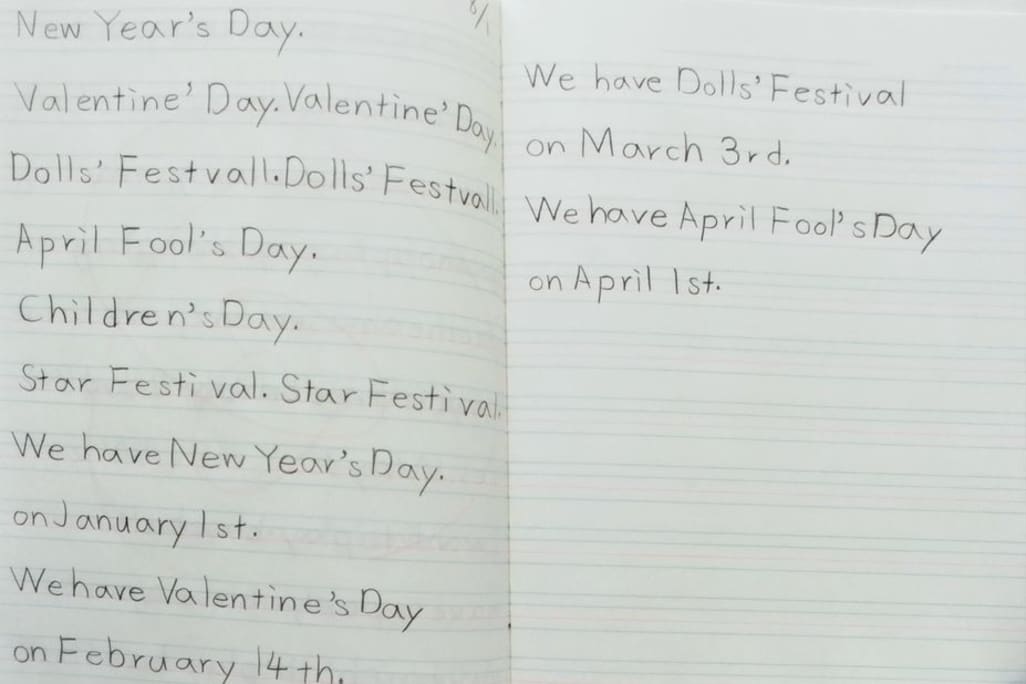 8/1
New Year's Day.
Valentine' Day. Valentine' Day.
Dolls' Festvall. Dolls' Festvall.
April Fool's Day.
Children's Day.
Star Festival. Star Festival.
We have New Year's Day.
on January 1st.
We have Valentine's Day
on February 14th.
We have Dolls' Festival
on March 3rd.
We have April Fool's Day
on April 1st.